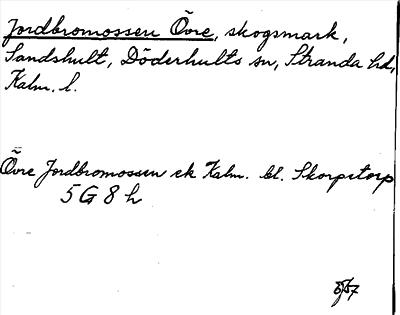 Jordbromossen Övre, skogsmark,
Sandshult, Döderhults sn, Stranda hd,
Kalm. l.
Övre Jordbromossen ek Kalm. bl. Skorpetorp
5 G 8 h